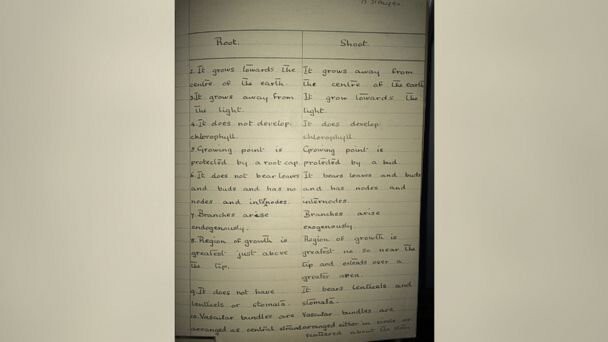 Root. Shoot.
2. It grows towards the It grows away from
centre of the earth the centre of the earth
3. It grows away from It grow towards the
the light. light.
4. It does not develop. It does develop
chlorophyll chlorophyll
5. Growing point is Growing point is
protected by a root cap. protected by a bud
6. It does not bear leaves It bears leaves and buds
and buds and has no and has nodes and
nodes and internodes internodes.
7. Branches arise Branches arise
endogenously. exogenously
8. Region of growth is Region of growth is
greatest just above greatest is so near the
the tip. tip and extends over a
greater area
9. It does not have It bears lenticels and
lenticels or stomata. stomata.
10. Vascular bundles are Vascular bundles are
arranged as central arranged either in
scattered about the